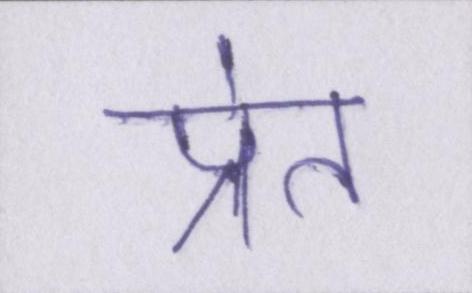 प्रंत